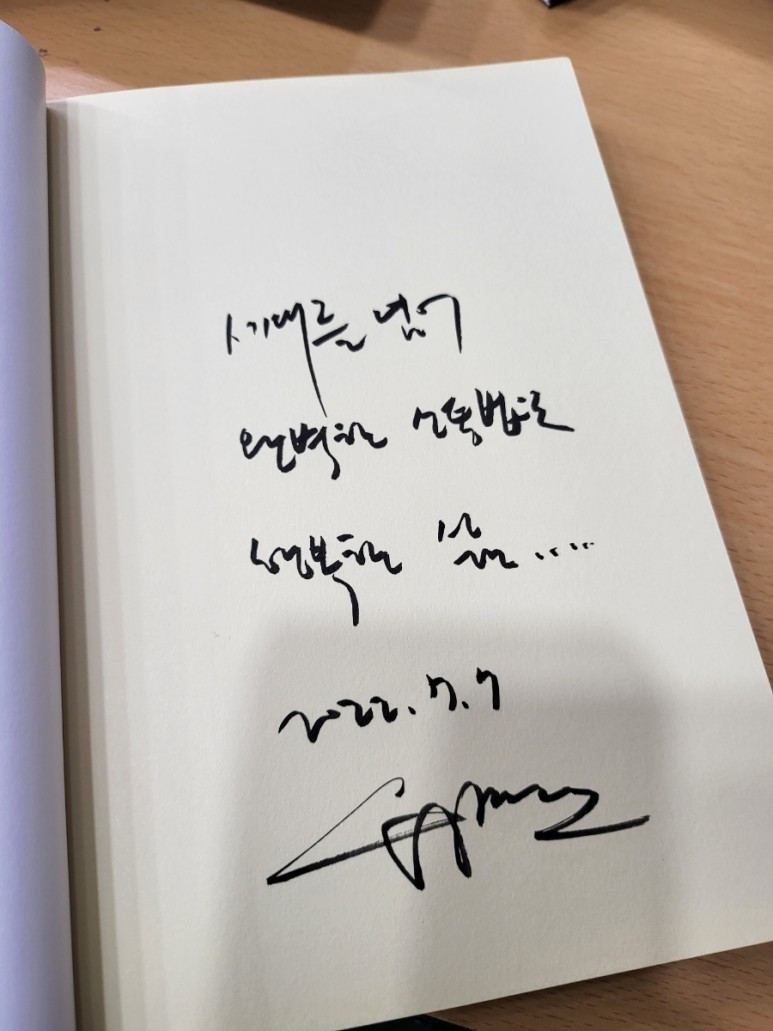 세대를 넘어
완벽한 소통법으로
행복한 삶....
2022.7.7